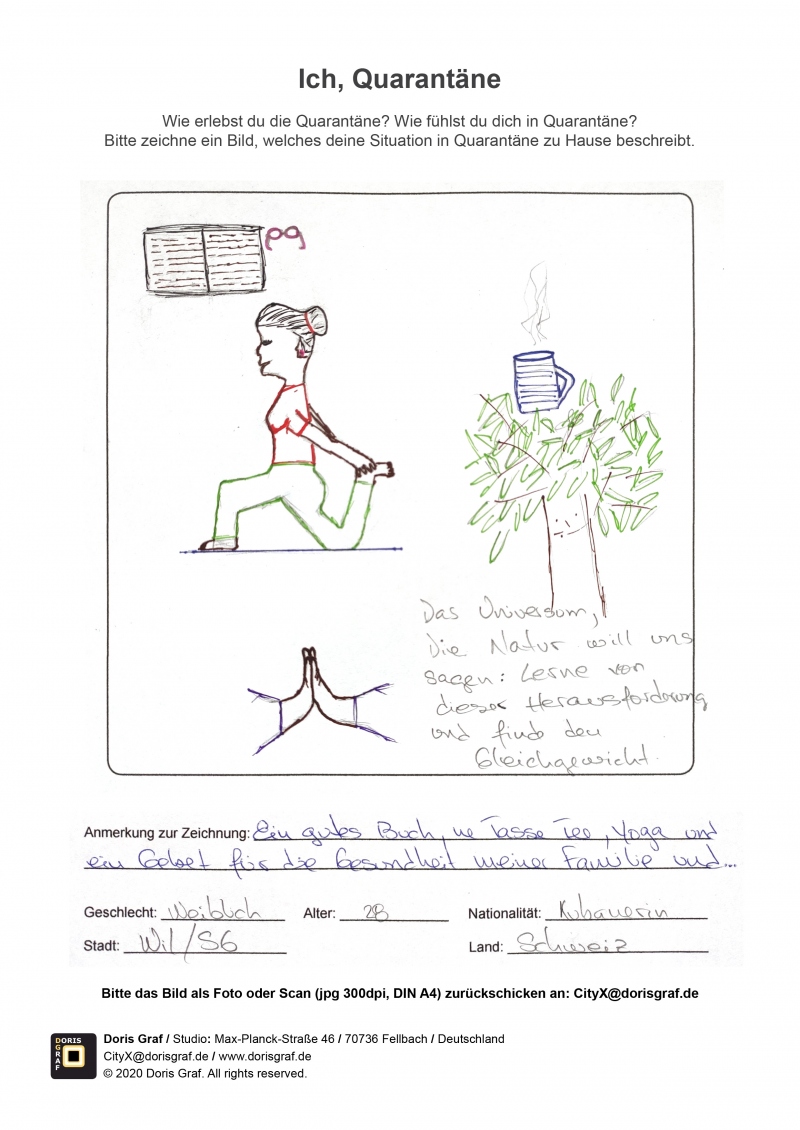 Ich, Quarantäne
Wie erlebst du die Quarantäne? Wie fühlst du dich in Quarantäne?
Bitte zeichne ein Bild, welches deine Situation in Quarantäne zu Hause beschreibt.
Das Universum,
Die Natur will uns
sagen: Lerne von
dieser Herausforderung
und finde den
Gleichgewicht.
Anmerkung zur Zeichnung: Ein gutes Buch, ne Tasse Tee, Yoga und
ein Gebet für die Gesundheit meiner Familie und...
Geschlecht: Weiblich Alter: 28 Nationalität: Kubanerin
Stadt: Wil/SG Land: Schweiz
Bitte das Bild als Foto oder Scan (jpg 300dpi, DIN A4) zurückschicken an: CityX@dorisgraf.de
DORIS
GRAF
Doris Graf / Studio: Max-Planck-Straße 46 / 70736 Fellbach / Deutschland
CityX@dorisgraf.de / www.dorisgraf.de
© 2020 Doris Graf. All rights reserved.